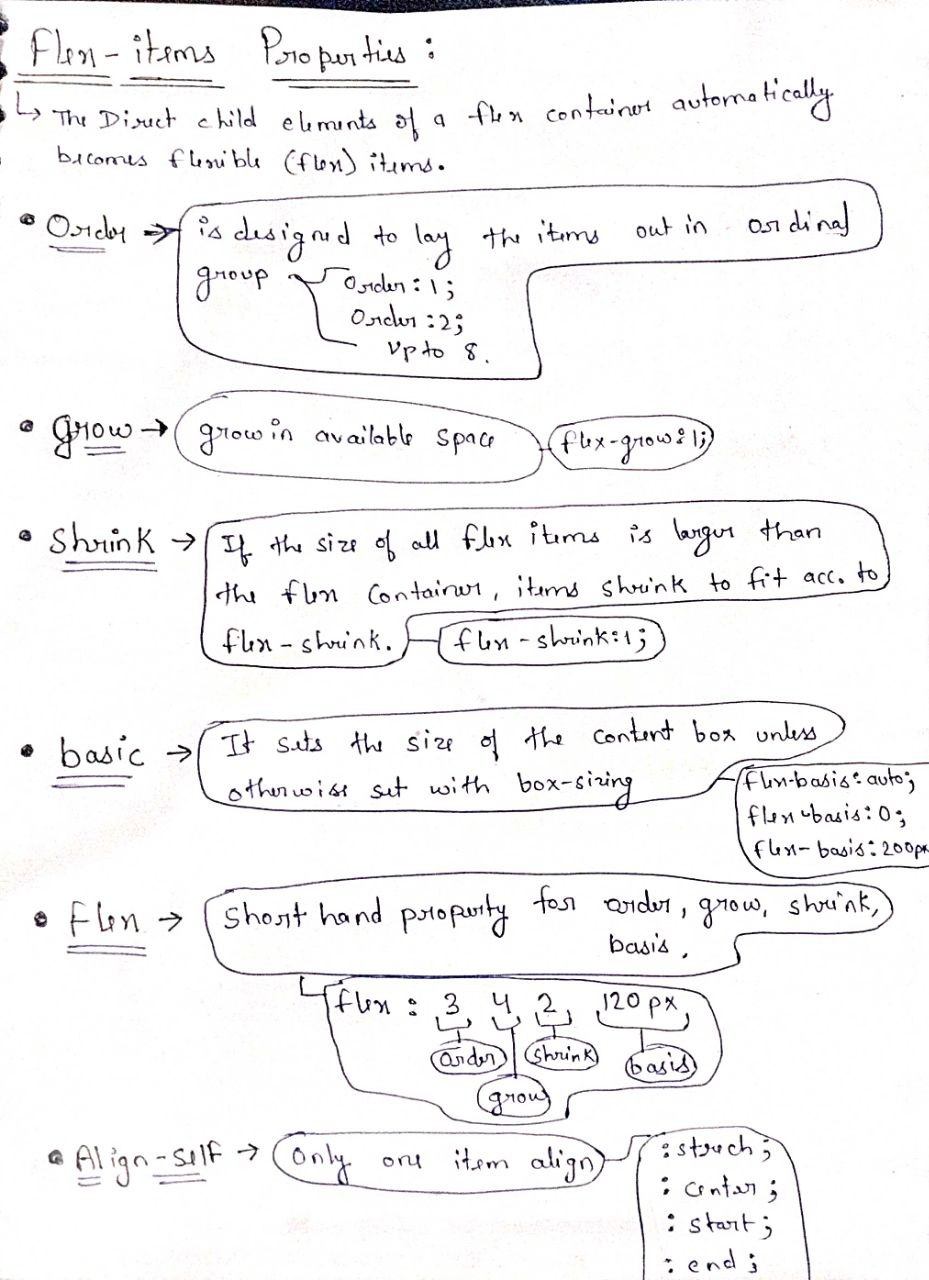 Flex-items Properties :
↳ The Direct child elements of a flex container automatically
becomes flexible (flex) items.
• Order → is designed to lay the items out in ordinal
group Order : 1;
Order : 2;
Upto 8.
• grow → grow in available space flex-grow:1;
• Shrink → If the size of all flex items is larger than
the flex Container, items shrink to fit acc. to
flex-shrink. flex-shrink:1;
• basic → It sets the size of the content box unless
otherwise set with box-sizing flex-basis:auto;
flex-basis:0;
flex-basis:200px
• Flex → Short hand property for order, grow, shrink,
basis.
flex : 3 4 2 120px
order shrink basis
grow
• Align-self → Only one item align : strech;
: center;
: start;
: end;